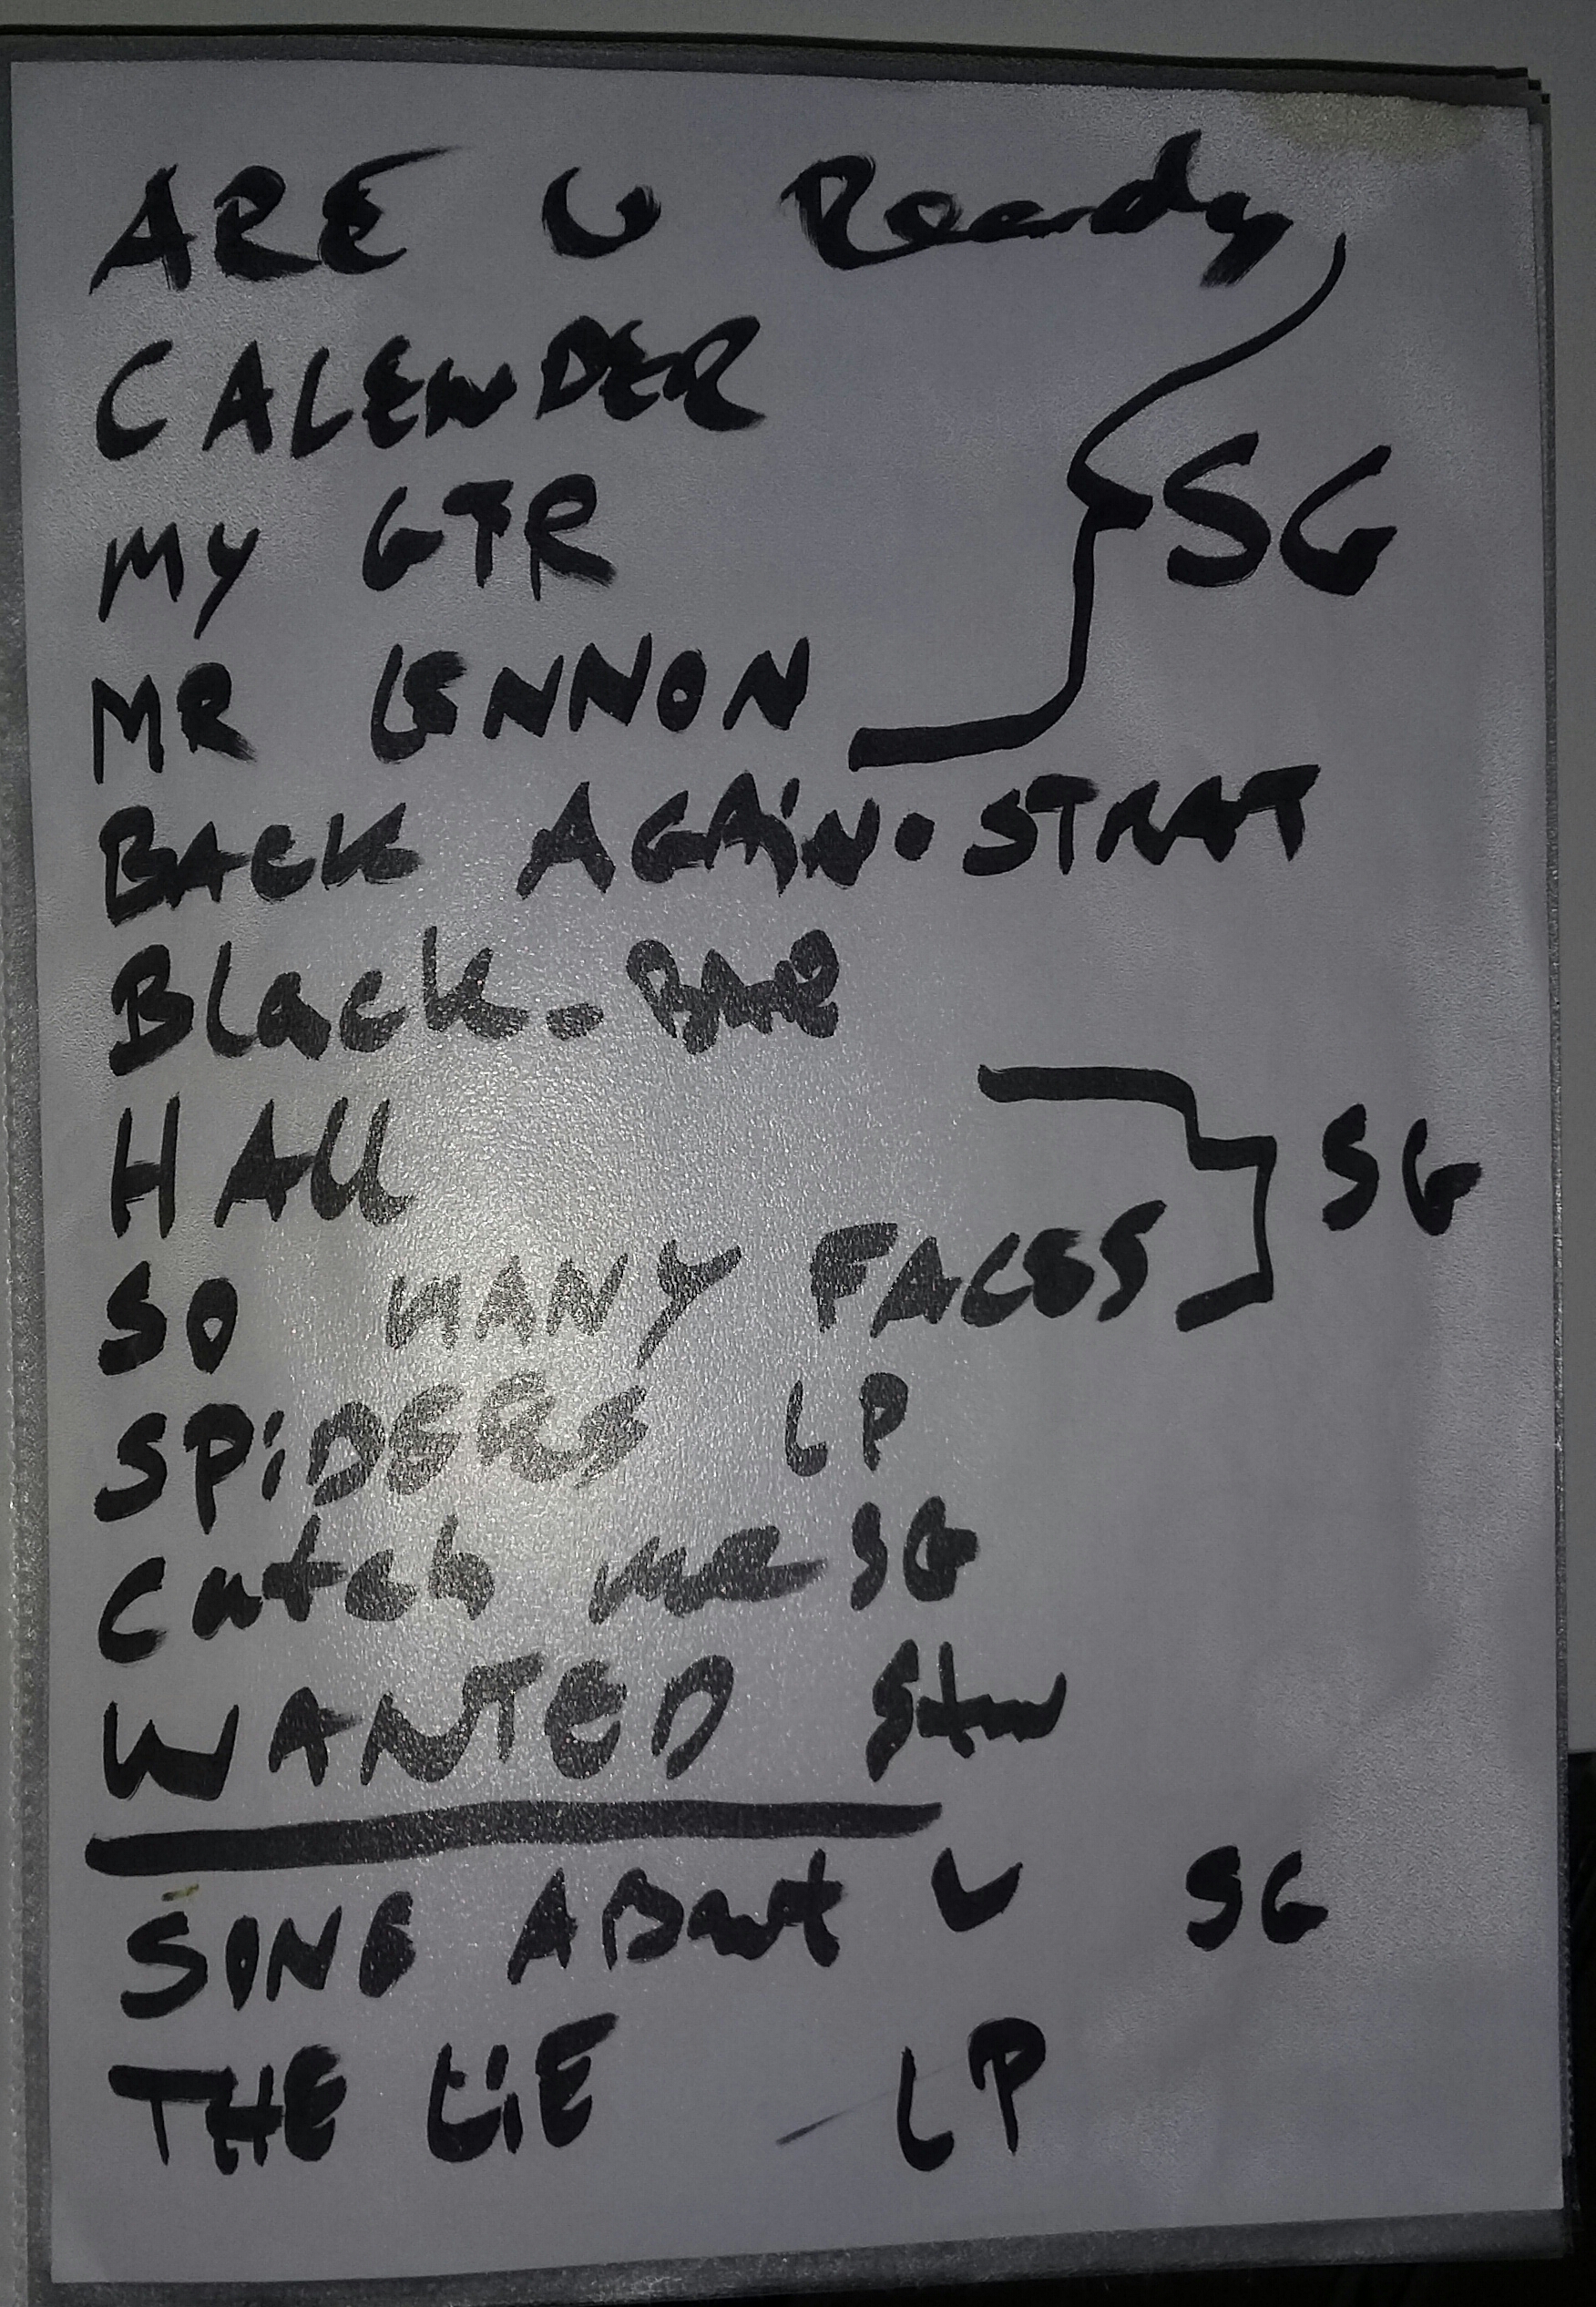 ARE U Ready
CALENDER
MY GTR
SG
MR LENNON
BACK AGAiN • STRAT
Black - BAR
HAll
SG
SO MANY FACES
SPiDERS LP
Catch me SG
WANTED
SONG ABout U SG
THE LiE LP